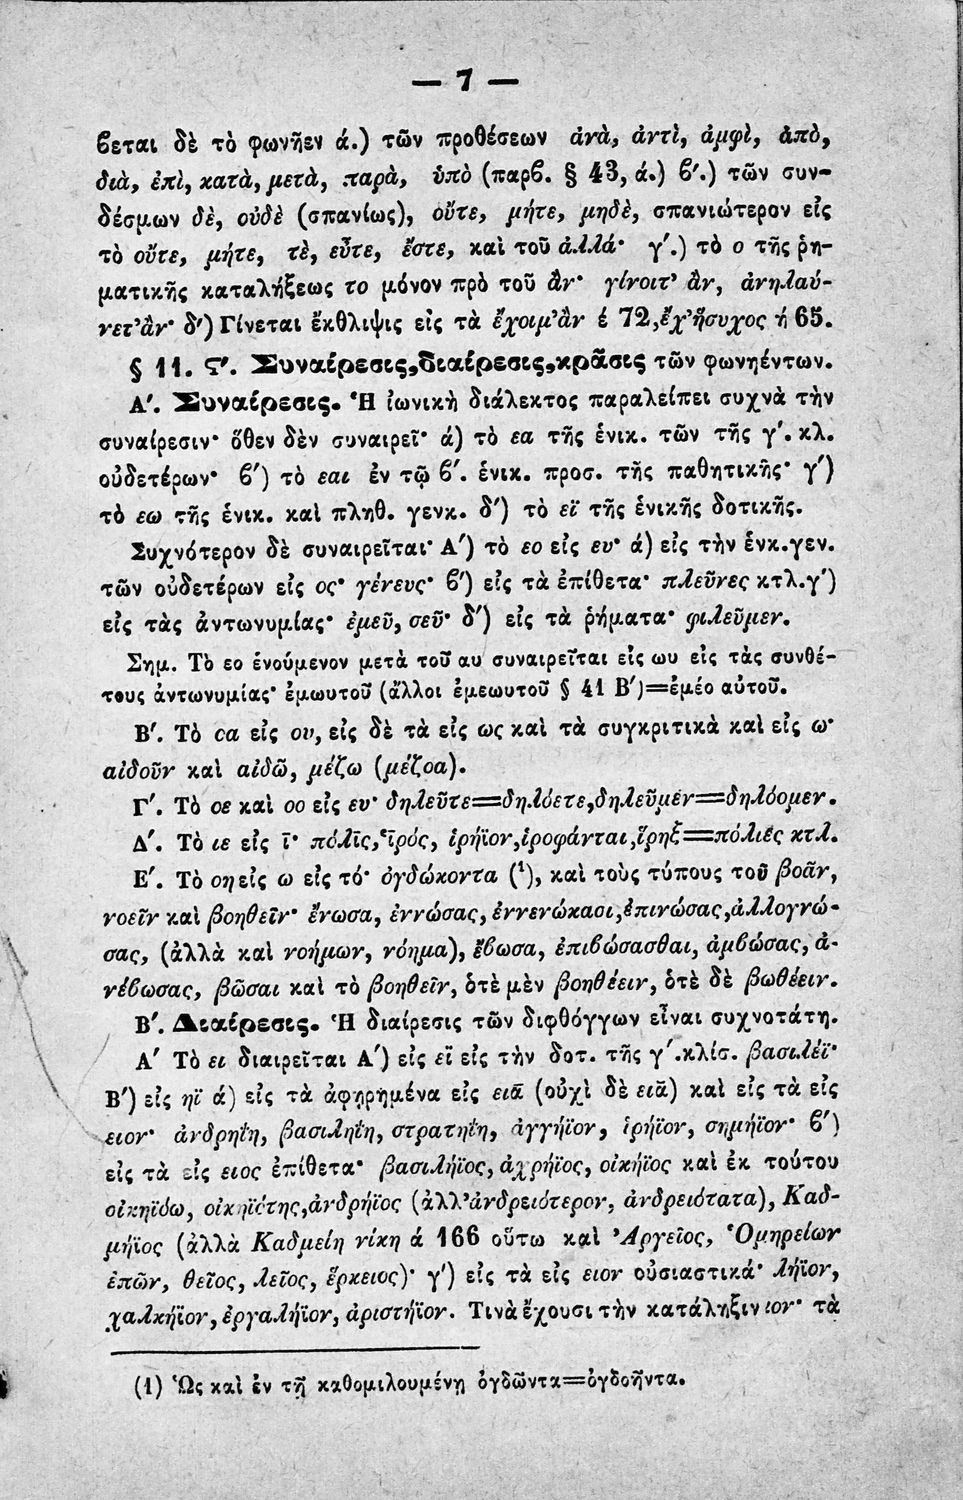 — 7 —
βεται δὲ τὸ φωνῆεν ά.) τῶν προθέσεων ἀνὰ, ἀντὶ, ἀμφὶ, ἀπὸ,
διὰ, ἐπὶ, κατὰ, μετὰ, παρὰ, ὑπὸ (παρβ. § 43, ά.) β'.) τῶν συν-
δέσμων δὲ, οὐδὲ (σπανίως), οὔτε, μήτε, μηδὲ, σπανιώτερον εἰς
τὸ οὔτε, μήτε, τὲ, εὖτε, ἔστε, καὶ τοῦ ἀλλά· γ'.) τὸ ο τῆς ῥη-
ματικῆς καταλήξεως το μόνον πρὸ τοῦ ἂν· γίνοιτ' ἂν, ἀνηλαύ-
νετ'ἂν· δ') Γίνεται ἔκθλιψις εἰς τὰ ἔχοιμ'ἂν έ 72, ἔχ'ἥσυχος ή 65.
§ 11. Ϛ'. Συναίρεσις, διαίρεσις, κρᾶσις τῶν φωνηέντων.
Α'. Συναίρεσις. Ἡ ἰωνικὴ διάλεκτος παραλείπει συχνὰ τὴν
συναίρεσιν· ὅθεν δὲν συναιρεῖ· ά) τὸ εα τῆς ἑνικ. τῶν τῆς γ'. κλ.
οὐδετέρων· β') τὸ εαι ἐν τῷ β'. ἑνικ. προσ. τῆς παθητικῆς· γ')
τὸ εω τῆς ἑνικ. καὶ πληθ. γενκ. δ') τὸ εϊ τῆς ἑνικῆς δοτικῆς.
Συχνότερον δὲ συναιρεῖται· Α') τὸ εο εἰς ευ· ά) εἰς τὴν ἑνκ. γεν.
τῶν οὐδετέρων εἰς ος· γένευς· β') εἰς τὰ ἐπίθετα· πλεῦνες κτλ. γ')
εἰς τὰς ἀντωνυμίας· ἐμεῦ, σεῦ· δ') εἰς τὰ ῥήματα· φιλεῦμεν.
Σημ. Τὸ εο ἑνούμενον μετὰ τοῦ αυ συναιρεῖται εἰς ωυ εἰς τὰς συνθέ-
τους ἀντωνυμίας· ἐμωυτοῦ (ἄλλοι ἐμεωυτοῦ § 41 Β')=ἐμέο αὐτοῦ.
Β'. Τὸ οα εἰς ου, εἰς δὲ τὰ εἰς ως καὶ τὰ συγκριτικὰ καὶ εἰς ω·
αἰδοῦν καὶ αἰδῶ, μέζω (μέζοα).
Γ'. Τὸ οε καὶ οο εἰς ευ· δηλεῦτε=δηλόετε, δηλεῦμεν=δηλόομεν.
Δ'. Τὸ ιε εἰς ῑ· πόλῑς, ἱρός, ἱρήϊον, ἱροφάνται, ἵρηξ=πόλιες κτλ.
Ε'. Τὸ οη εἰς ω εἰς τό· ὀγδώκοντα (¹), καὶ τοὺς τύπους τοῦ βοᾶν,
νοεῖν καὶ βοηθεῖν· ἔνωσα, ἐννώσας, ἐννενώκασι, ἐπινώσας, ἀλλογνώ-
σας, (ἀλλὰ καὶ νοήμων, νόημα), ἔβωσα, ἐπιβώσασθαι, ἀμβώσας, ἀ-
νέβωσας, βῶσαι καὶ τὸ βοηθεῖν, ὁτὲ μὲν βοηθέειν, ὁτὲ δὲ βωθέειν.
Β'. Διαίρεσις. Ἡ διαίρεσις τῶν διφθόγγων εἶναι συχνοτάτη.
Α' Τὸ ει διαιρεῖται Α') εἰς εϊ εἰς τὴν δοτ. τῆς γ'. κλίσ. βασιλέϊ·
Β') εἰς ηϊ ά) εἰς τὰ ἀφῃρημένα εἰς ειᾱ (οὐχὶ δὲ ειᾰ) καὶ εἰς τὰ εἰς
ειον· ἀνδρηΐη, βασιληΐη, στρατηΐη, ἀγγήϊον, ἱρήϊον, σημήϊον· β')
εἰς τὰ εἰς ειος ἐπίθετα· βασιλήϊος, ἀχρήϊος, οἰκήϊος καὶ ἐκ τούτου
οἰκηϊόω, οἰκηϊότης, ἀνδρήϊος (ἀλλ'ἀνδρειότερον, ἀνδρειότατα), Καδ-
μήϊος (ἀλλὰ Καδμείη νίκη ά 166 οὕτω καὶ Ἀργεῖος, Ὁμηρείων
ἐπῶν, θεῖος, λεῖος, ἕρκειος)· γ') εἰς τὰ εἰς ειον οὐσιαστικά· λήϊον,
χαλκήϊον, ἐργαλήϊον, ἀριστήϊον. Τινὰ ἔχουσι τὴν κατάληξιν ιον· τὰ
(1) Ὡς καὶ ἐν τῇ καθομιλουμένῃ ὀγδῶντα=ὀγδοῆντα.